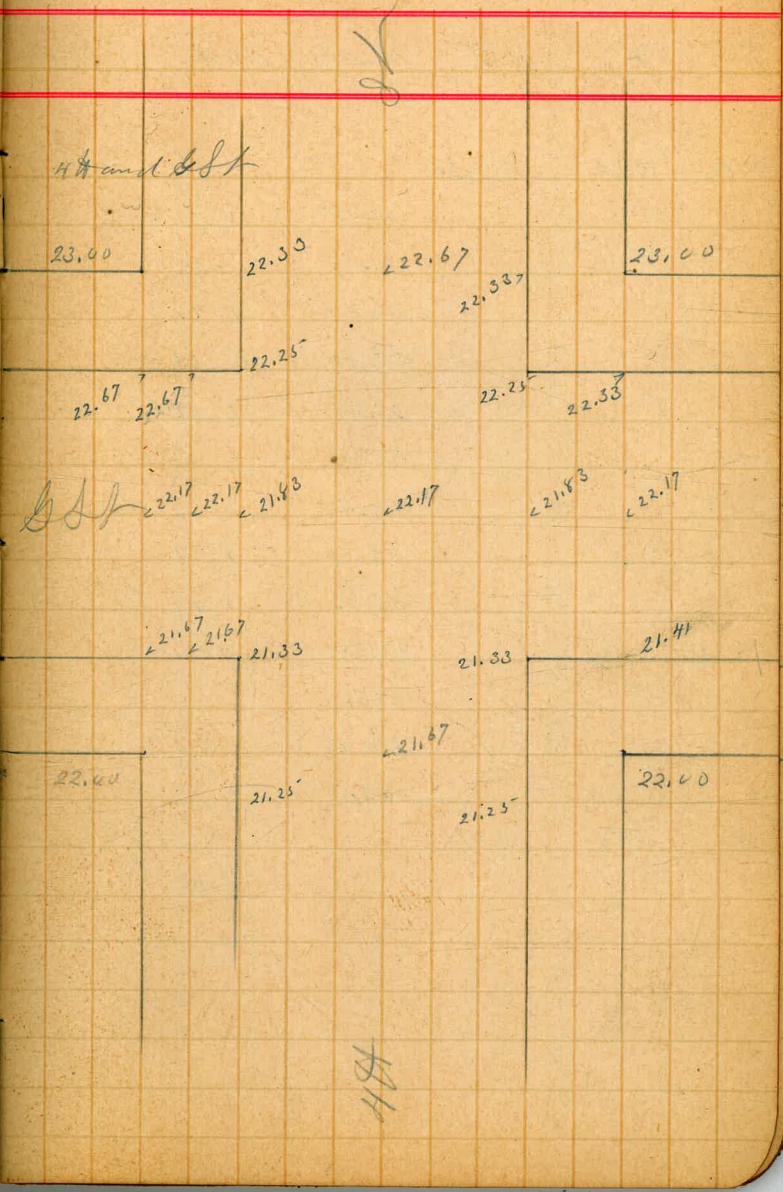 St
4th and G St
23.00 22.33 22.67 23.00
22.33
22.25
22.67 22.67 22.25 22.33
G St 22.17 22.17 21.83 22.17 21.83 22.17
21.67 21.67 21.33 21.33 21.41
21.67
22.00 21.25 21.25 22.00
4th